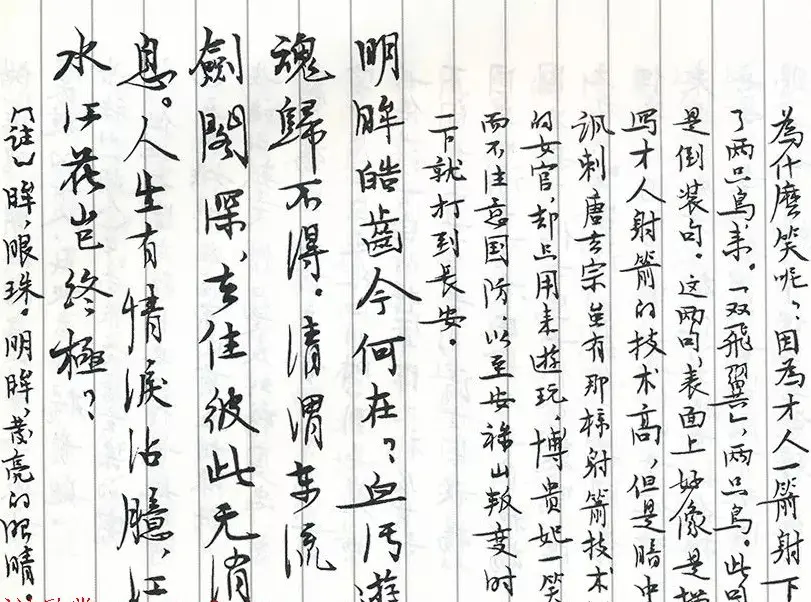 為什麼笑呢？因為才人一箭射下
了两只鳥来。「双飛翼」，两只鳥。此句
是倒装句。这两句，表面上好像是描
写才人射箭的技术高，但是暗中
讽刺唐玄宗虽有那样射箭技术
的女官，却只用来遊玩，博貴妃一笑
而不注意国防以至安禄山叛变时
一下就打到長安。
明眸皓齒今何在？血污遊
魂歸不得。清渭东流
劍閣深，去住彼此无消
息。人生有情淚沾臆，江
水江花岂终極？
〔註〕眸，眼珠。明眸，漂亮的眼睛。